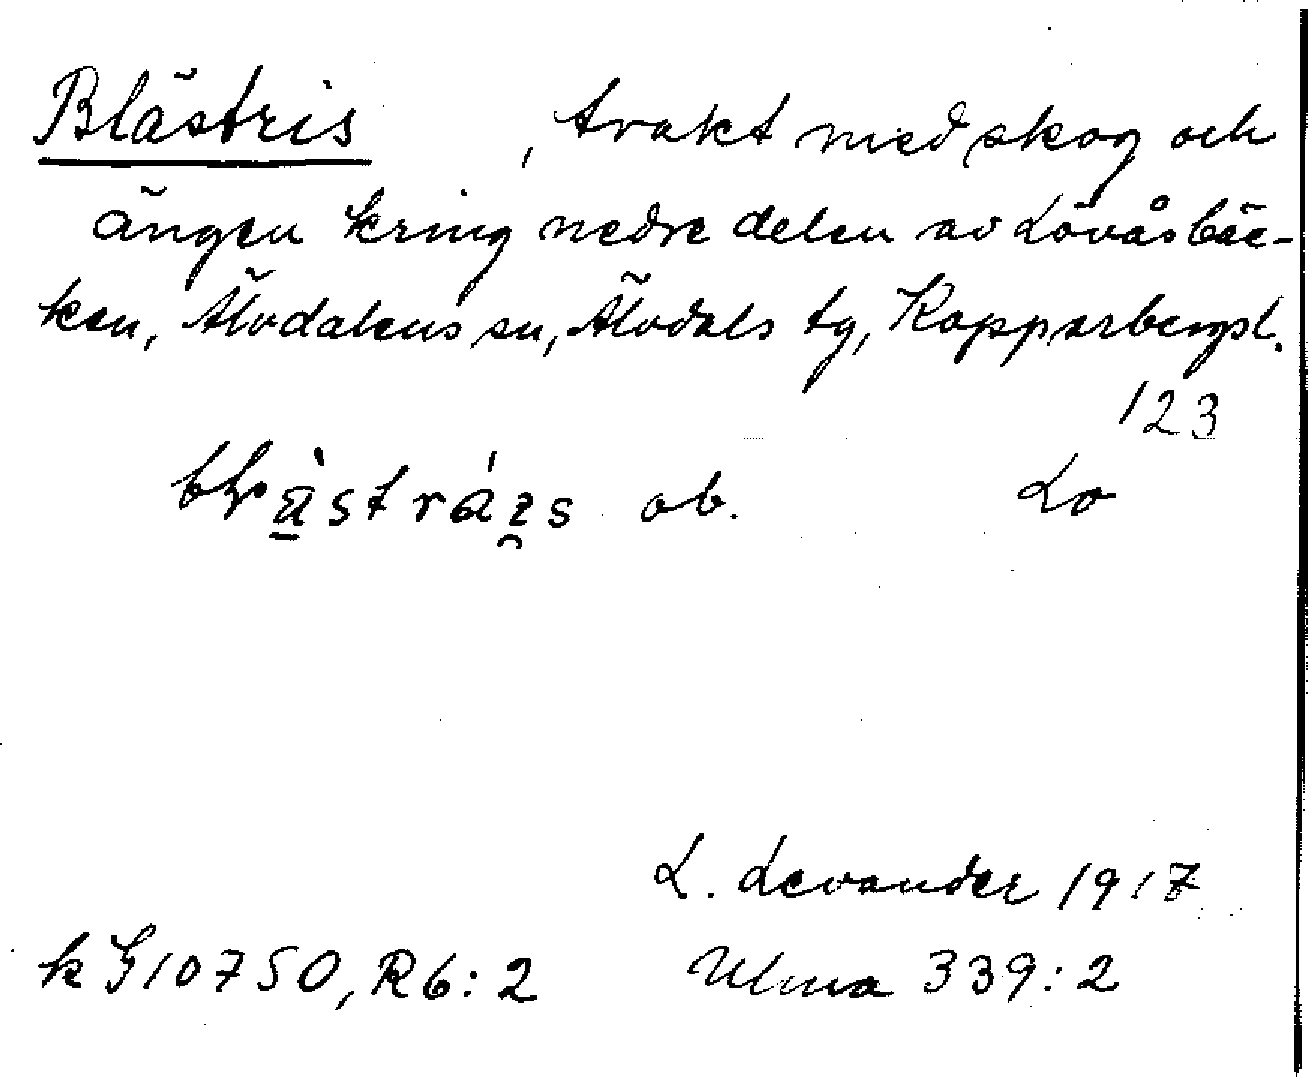 Blästris , trakt med skog och
ängen kring nedre delen av Lövåsbäc-
ken, Älvdalens sn, Älvdals tg, Kopparbergs l.
123
ästráis ob. Lo
L. Levander 1917
k G10750, R6:2 Ulma 339:2